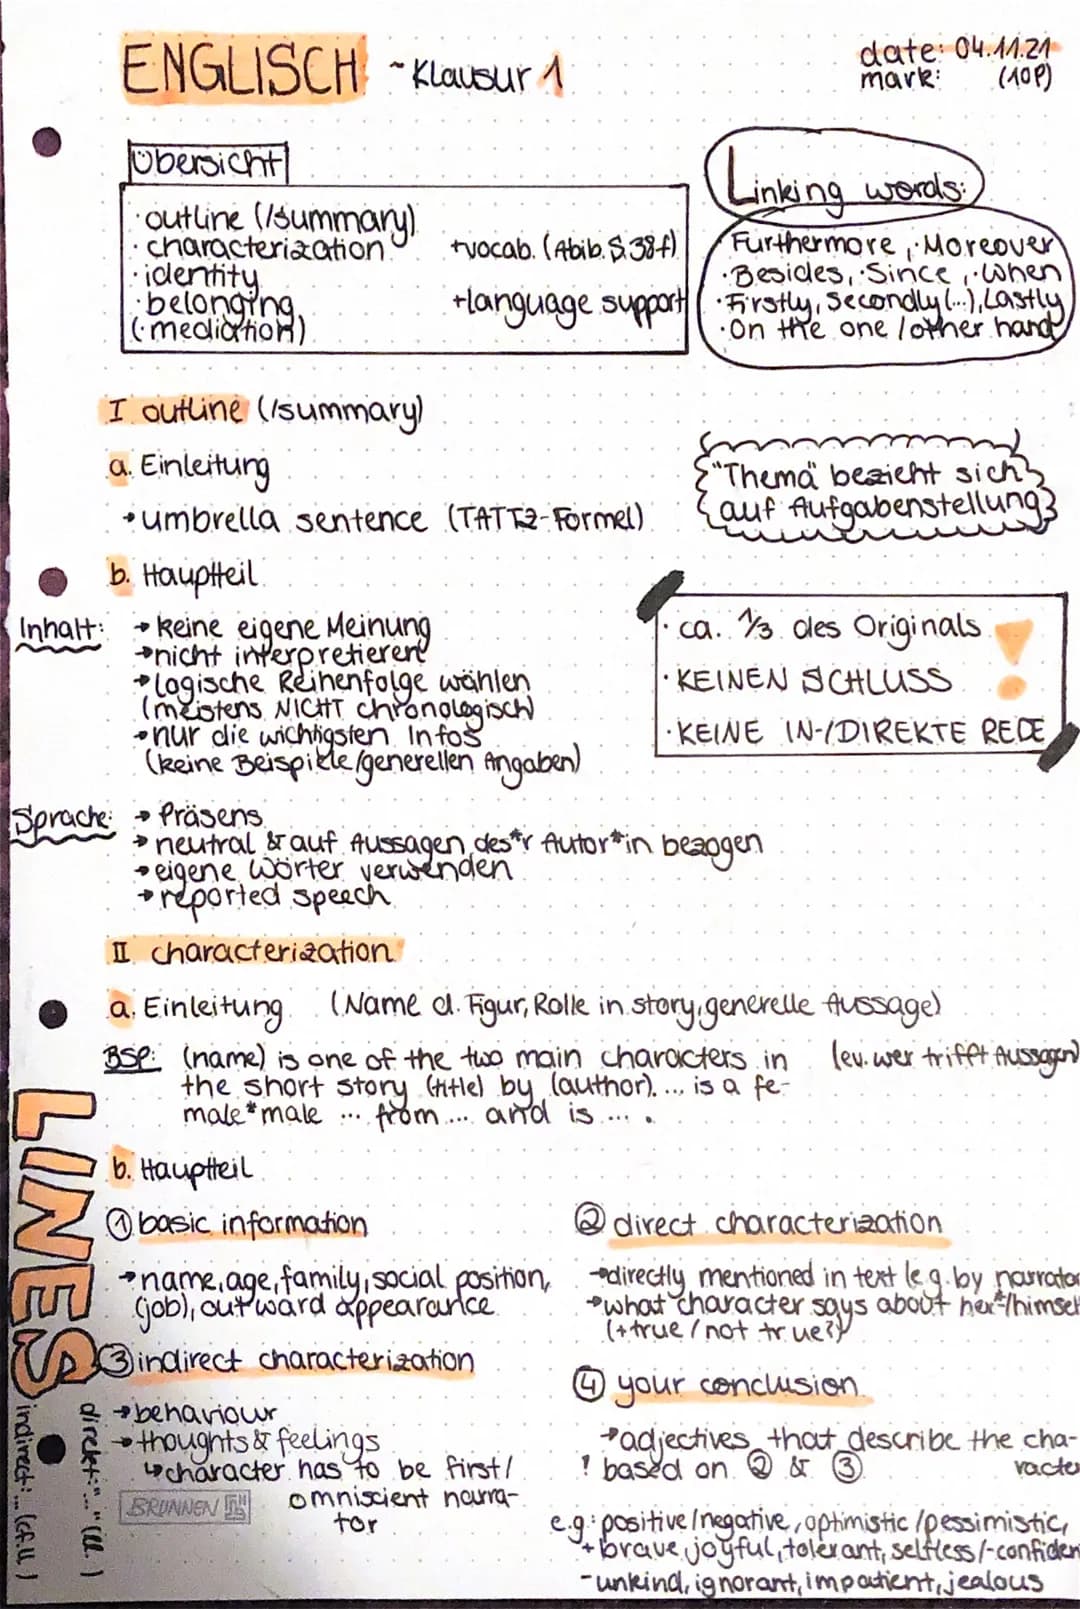 ENGLISCH ~ Klausur 1
date: 04.11.21
mark: (10P)
Übersicht
· outline (/summary)
· characterization +vocab. (Abib. S.38f)
· identity
· belonging +language support
(· mediation)
Linking words:
Furthermore, · Moreover
· Besides, · Since, · When
· Firstly, Secondly (...), Lastly
· On the one / other hand
I outline (/summary)
a. Einleitung
→ umbrella sentence (TATTZ-Formel)
"Thema" bezieht sich
auf Aufgabenstellung
b. Hauptteil
Inhalt: → keine eigene Meinung
→ nicht interpretieren
→ logische Reihenfolge wählen
(meistens NICHT chronologisch)
→ nur die wichtigsten Infos
(keine Beispiele/generellen Angaben)
· ca. 1/3 des Originals !
· KEINEN SCHLUSS
· KEINE IN-/DIREKTE REDE
Sprache: → Präsens
→ neutral & auf Aussagen des*r Autor*in bezogen
→ eigene Wörter verwenden
→ reported speech
II characterization
a. Einleitung (Name d. Figur, Rolle in story, generelle Aussage)
BSP: (name) is one of the two main characters in (ev. wer trifft Aussagen)
the short story (title) by (author). ... is a fe-
male*male ... from ... and is ... .
b. Hauptteil
① basic information
→ name, age, family, social position,
(job), outward appearance
② direct characterization
→ directly mentioned in text (e.g. by narrator
→ what character says about her*/himself
(+ true / not true?)
③ indirect characterization
→ behaviour
→ thoughts & feelings
↳ character has to be first/
omniscient narra-
tor
④ your conclusion
→ adjectives that describe the cha-
racter
! based on ② & ③
e.g.: positive/negative, optimistic/pessimistic,
+ brave, joyful, tolerant, selfless/-confiden
- unkind, ignorant, impatient, jealous
LINES
direkt: "..." (ll. )
indirect: ... (cf. ll. )
BRUNNEN